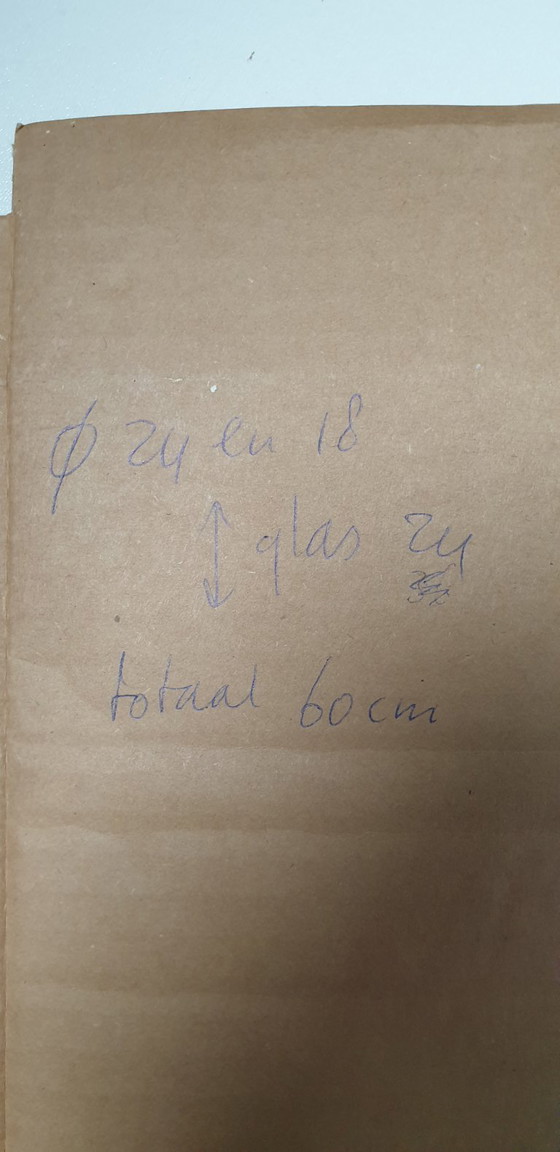 ϕ 24 en 18
↕ glas 24
totaal 60 cm